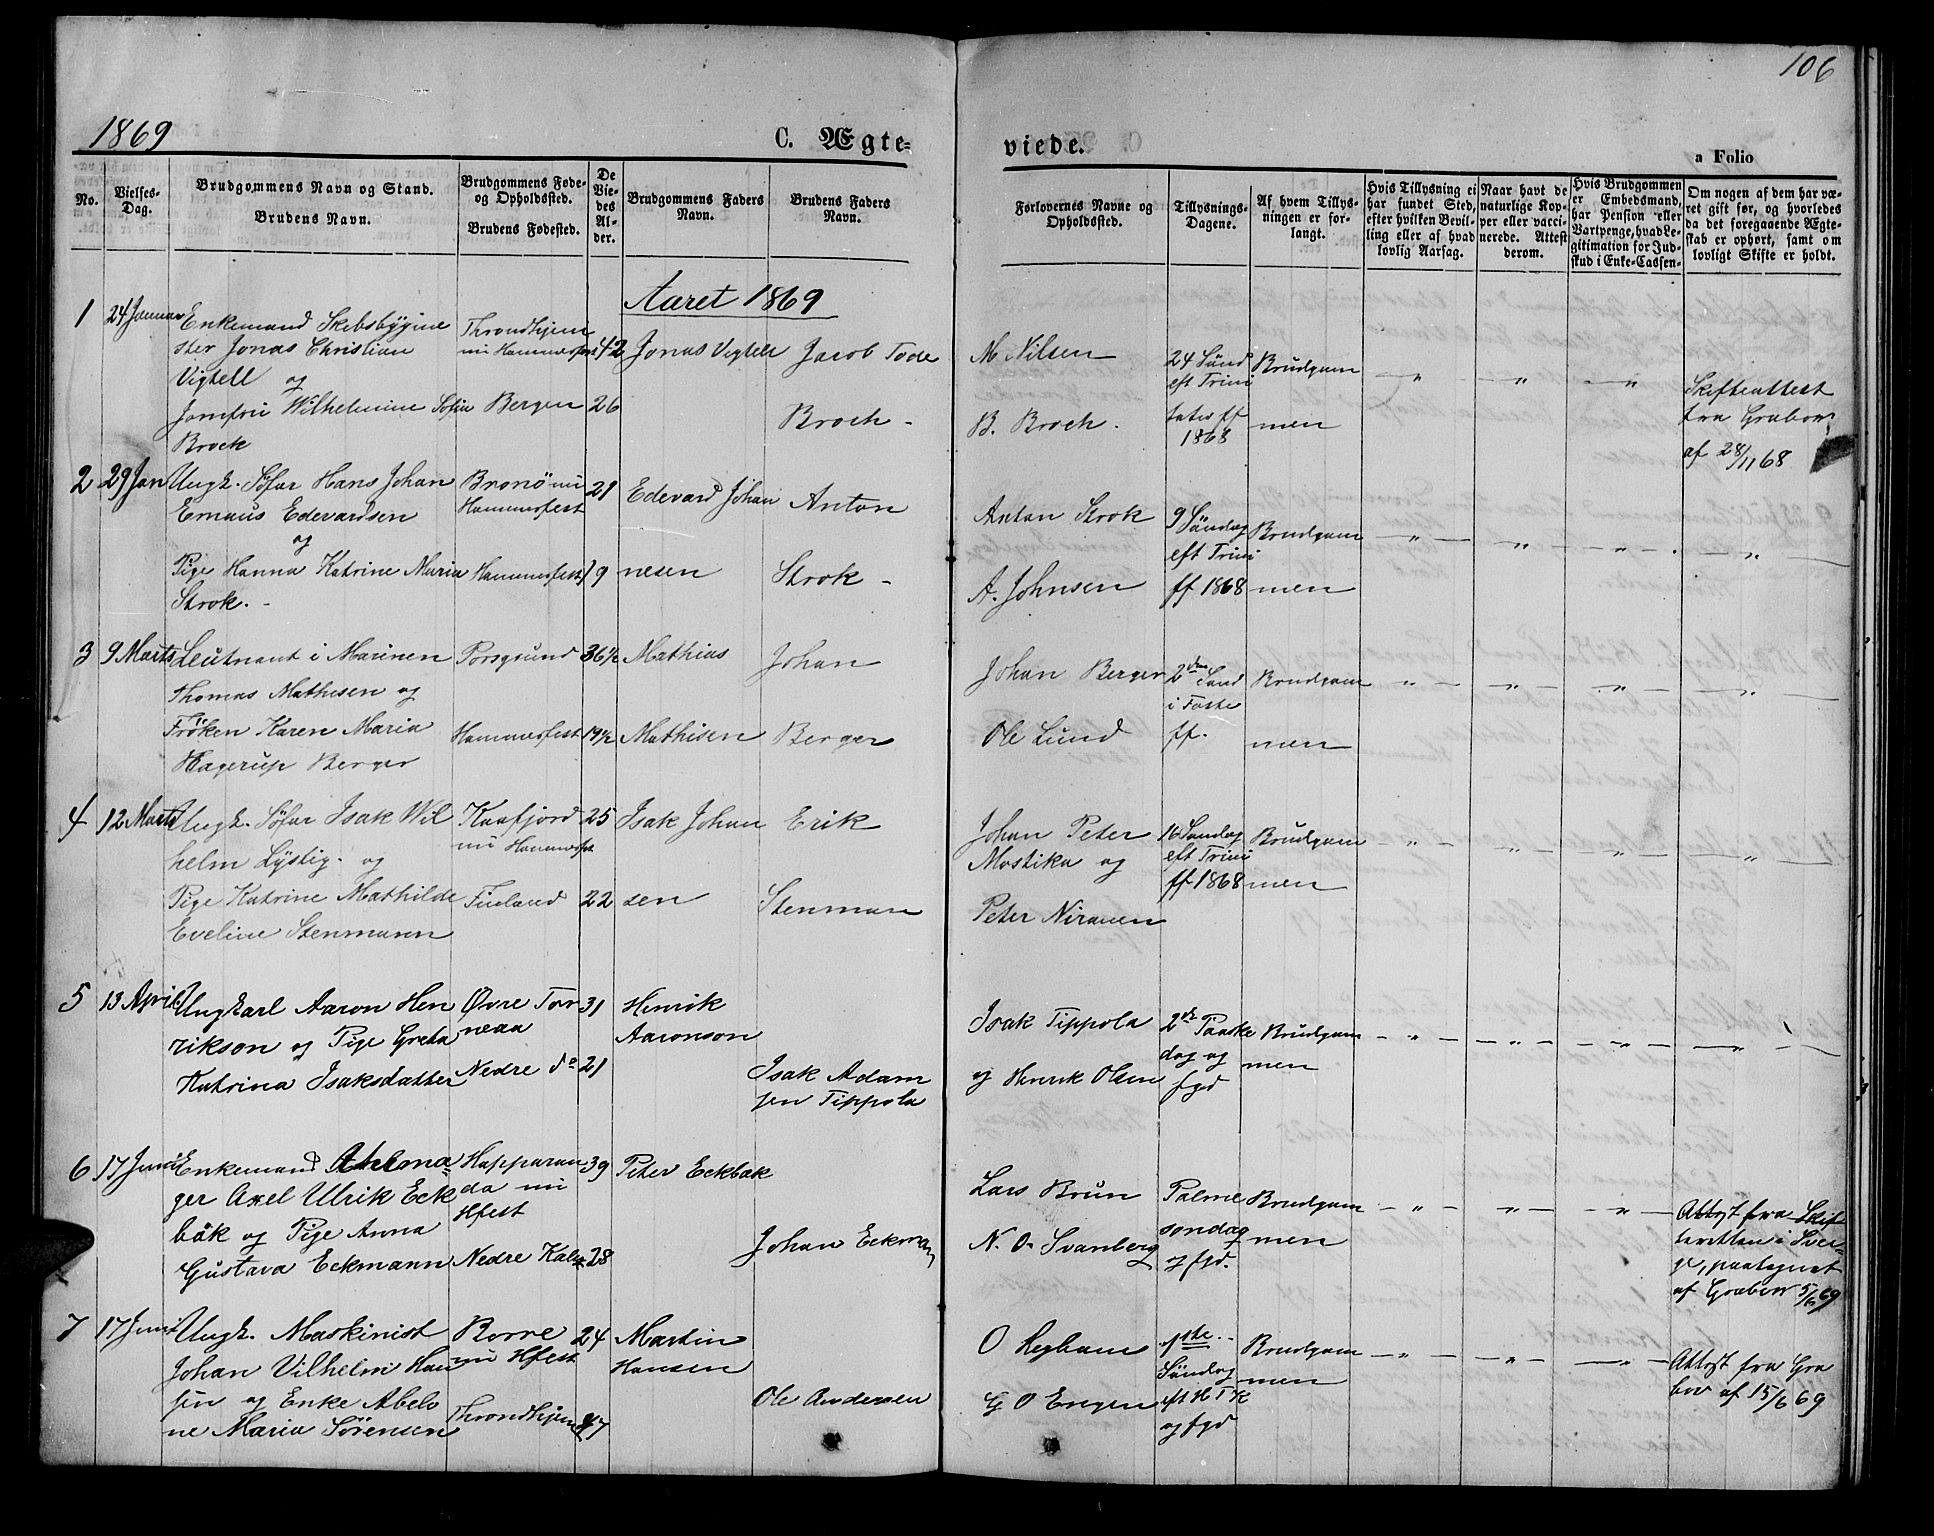 106
1869
C. Ægte-
viede.
a Folio
No.
Vielses-
Dag.
Brudgommens Navn og Stand.
Brudens Navn.
Brudgommens Føde-
og Opholdssted.
Brudens Fødested.
De
Vie-
des
Al-
der.
Brudgommens Faders
Navn.
Brudens Faders
Navn.
Forlovernes Navne og
Opholdssted.
Tillysnings-
Dagene.
Af hvem Tillys-
ningen er for-
langt.
Hvis Tillysning ei
har fundet Sted,
efter hvilken Bevil-
ling eller af hvad
lovlig Aarsag.
Naar havt de
naturlige Kop-
per eller vacci-
nerede. Attest
derom.
Hvis Brudgommen
er Embedsmand,
har Pension eller
Vartpenge, hvad Le-
gitimation for Ind-
skud i Enke-Cassen-
Om nogen af dem har væ-
ret gift før, og hvorledes
da det foregaaende Ægte-
skab er ophørt, samt om
lovligt Skifte er holdt.
Aaret 1869
1
24 Januar
Enkemand Skibsbygme
ster Jonas Christian
Vigtell
og
Jomfru Wilhelmine Sofia
Brock
Throndhjem
nu Hammerfest
Bergen
42
26
Jonas Vigtell
Jacob Tode
Broch -
M Nilsen
B. Broch.
24 Sønd
eft Trini
tatis ff
1868
Brudgom
men
— " —
— " —
— " —
Skifteattest
fra Grabow
af 28/11 68
2
29 Jan
Ungk. Søfar Hans Johan
Emaus Edevardsen
og
Pige Hanna Katrine Maria
Strok. -
Bronö nu
Hammerfest
Hammerfest
21
19
Edevard Johan
nesen
Anton
Strok -
Anton Strok
A. Johnsen
9 Söndag
eft Trini
ff 1868
Brudgom
men
— " —
— " —
— " —
"
3
9 Marts
Leutnant i Marinen
Thomas Mathisen og
Fröken Karen Maria
Hagerup Berger
Porsgrund
Hammerfest
36½
19½
Mathias
Mathisen
Johan
Berger
Johan Berger
Ole Lund
2den Sønd
i Faste
ff.
Brudgom
men
— " —
— " —
— " —
"
4
12 Marts
Ungk. Söfar Isak Wil
helm Lÿstig. og
Pige Katrine Mathilde
Eveline Stenmann
Kaafjord
nu Hammerfest
Finland
25
22
Isak Johan
sen
Erik
Stenman
Johan Peter
Mostika og
Peter Niranen
16 Søndag
eft Trini
ff 1868
Brudgom
men
— " —
— " —
— " —
"
5
13 April
Ungkarl Aaron Hen
rikson og Pige Greta
Katrina Isaksdatter
Øvre Tor
neaa
Nedre do
31
21
Henrik
Aaronson
Isak Adam
sen Tippola
Isak Tippola
og Henrik Olsen
2den Paaske
dag og
fgd
Brudgom
men
— " —
— " —
— " —
"
6
17 Juni
Enkemand
ger Axel Ulrik Eck
bäk og Pige Anna
Gustava Eckmann
Happaran
da nu
Hfest
Nedre Kalix
39
28
Peter Eckbäk
Johan Eckman
Lars Brun
N. O. Svanberg
Palme
søndag
og fgd.
Brudgom
men
— " —
— " —
— " —
Attest fra Skif
teretten i Sver-
ge, paategnet
af Grabow 5/6 69
7
17 Juni
Ungk. Maskinist
Johan Vilhelm Han
sen og Enke Abelo
ne Maria Sörensen
Borre
nu Hfest
Throndhjem
24
Martin
Hansen
Ole Andersen
G O Engen
1ste
Søndag
eft H T K
og fgd
Brudgom
men
— " —
— " —
— " —
Attest fra Gra
bow af 15/6 69